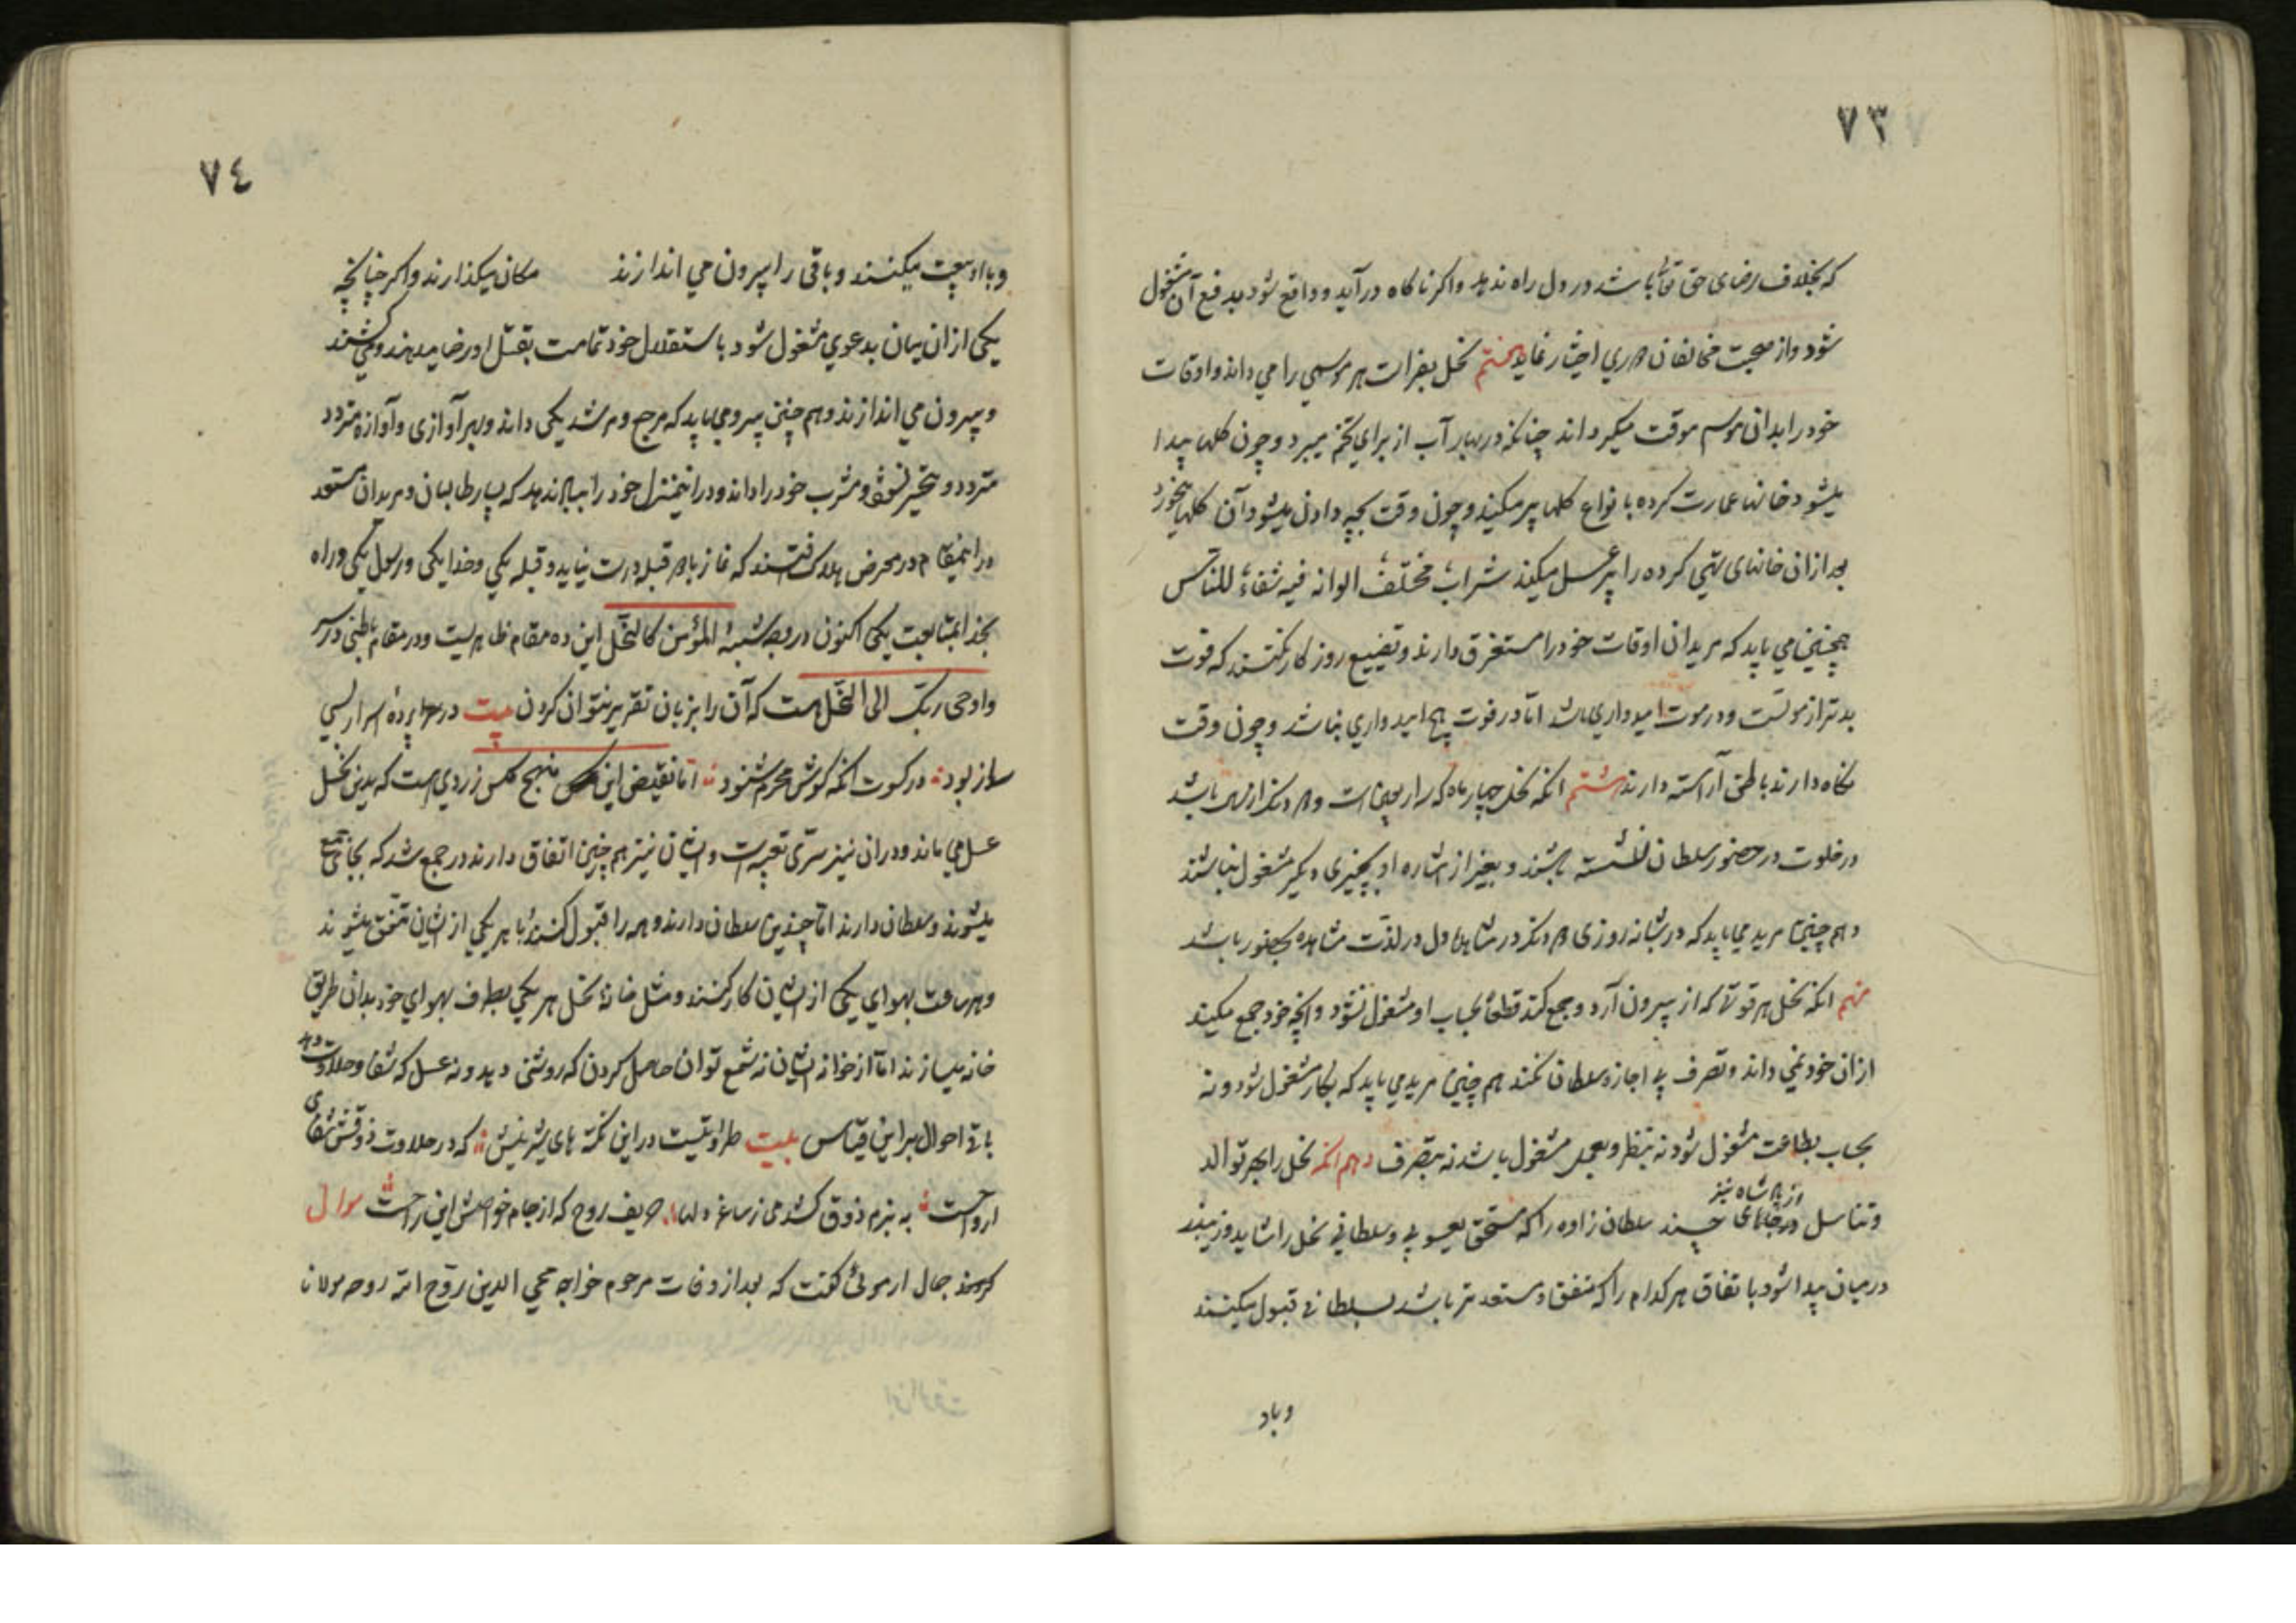 ٧٣
که بخلاف رضای حق تعالی باشد در دل راه ندهد و اکر ناکاه در آید و واقع شود بدفع آن مشغول
شود و از صحبت مخالفان دوری اختیار نماید هفتم نحل بغرات هر موسمی را می داند و اوقات
خود را بدان موسم موقت میکرداند چنانکه در بهار آب از برای تخم میبرد و چون کلها پیدا
میشود خانها عمارت کرده بانواع کلها پر میکند و چون وقت بچه دادن میشود آن کلها میخورد
بعد ازان خانهای تهی کرده را پر عسل میکند شرابٌ مختلفٌ الوانه فیه شفاءٌ للناس
همچنین می باید که مریدان اوقات خود را مستغرق دارند و تضییع روزکار نکنند که فوت
بدتر از موتست و در موت امیدواری باشد امّا در فوت هیچ امیدواری نباشد و چون وقت
نکاه دارند باطن آراسته دارند هشتم انکه نحل چهار ماه که را اربعین است و هم دیکر
در خلوت در حضور سلطان نشسته باشند و بغیر از اشاره او بچیزی دیکر مشغول نباشند
و هم چنین مرید می باید که در شبانه روزی دل در لذت مشاهده بحضور باشد
نهم انکه نحل هر قوتی که از بیرون آرد و جمع کند قطعاً بحساب او مشغول نشود و انچه خود جمع میکند
ازان خود نمی داند و تصرف بی اجازه سلطان نکند هم چنین مرید می باید که بکار مشغول شود و نه
بحساب بطاعت مشغول شود نه بنظر و بعمل مشغول باشد نه بتصرف دهم انکه نحل را بجهر توالد
از پادشاه نیز
و تناسل در خانهای چند سلطان زاده را که مستحق یعسوبی و سلطانی نحل را شاید و زیبد
در میان پیدا شود باتفاق هر کدام را که متفق و مستعد تر باشد بسلطانی قبول میکنند
وباد
٧٤
و با او بیعت میکنند و باقی را بیرون می اندازند مکان میکذارند و اکر چنانچه
یکی از ان میان بدعوی مشغول شود باستقلال خود تمامت بقتل او رضا میدهند و میکشند
و بیرون می اندازند و هم چنین پیرو می باید که مرجع و مرشد یکی داند و بهر آوازی و آوازه متردد
متردد و متحیر نشود و مشرب خود را داند و در اینمنزل خود را بباد ندهد که بسیار طالبان و مریدان مستعد
در اینمقام در معرض هلاک افتند که نماز با دو قبله درست نیاید و قبله یکی و خدا یکی و رسول یکی و راه
بخدا بمتابعت یکی اکنون در وجه شبهٔ المؤمن کالنحل این ده مقام ظاهریست و در مقام باطنی در سر
و اوحی ربّک الی النحل است که آن را بزبان تقریر نتوان کردن بیت در سراپردهٔ اسرار بسی
ساز بود در کوت انکه کوش محرم شنود امّا نقیض این منهج مکس زردی است که بدین نحل
عسل می ماند و دران نیز سرّی تعبیه است و ایشان نیز هم چنین اتفاق دارند در جمع شد که بجائی جمع
میشوند و سلطان دارند امّا چندین سلطان دارند و همه را قبول کنند با هر یکی از ایشان متفق میشوند
و هر ساعت بهوای یکی از ایشان کار کنند و مثل خانهٔ نحل هر یکی بطرف بهوای خود بدان طریق
خانه میسازند امّا از خوانه ایشان نه شمع توان حاصل کردن که روشنی دهد و نه عسل که شفا و حلاوت دهد
باقی احوال بر این قیاس بیت طراوتیست در این نکته های شیرینش که در حلاوت ذوقش شفای
ارواحست به بزم ذوق حریف روح که از جام خواصش این راحست سوال
کردند جمال ارموئی کفت که بعد از وفات مرحوم خواجه محیی الدین روّح الله روحه مولانا